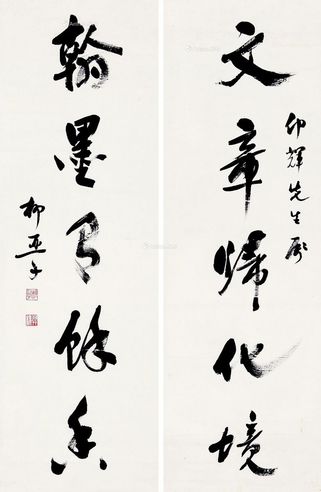 仰輝先生
文章歸化境
翰墨有餘香
柳亞子